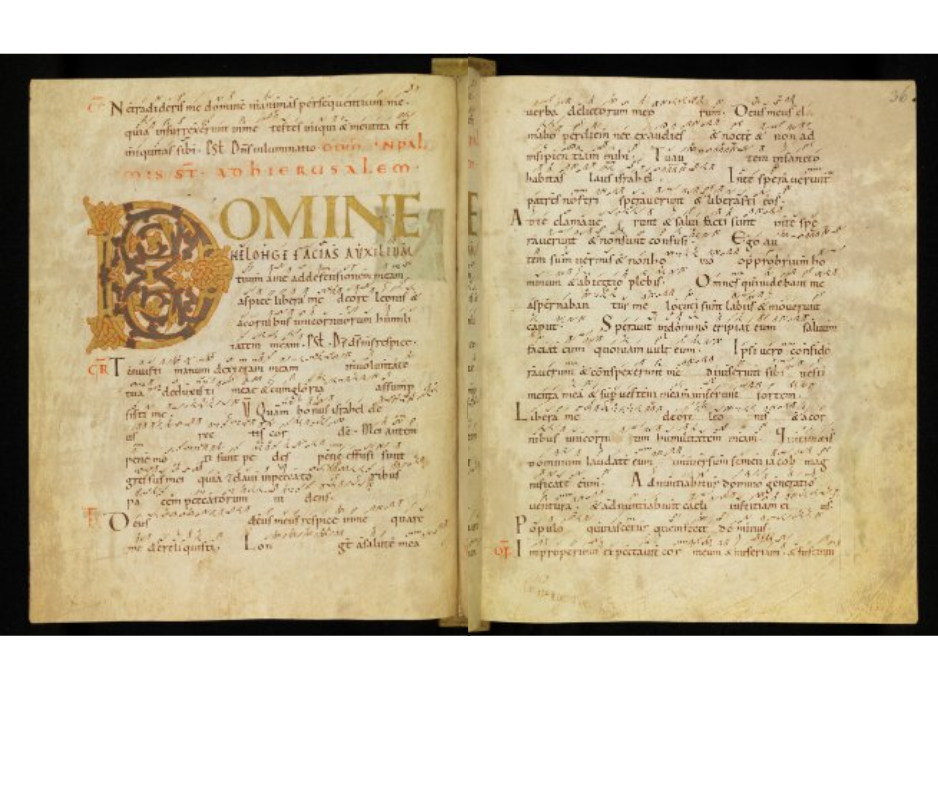 CÕ Ne tradideris me domine in animas persequentium me ·
quia insurrexerunt in me testes iniqui & mentita est
iniquitas sibi · Pst · Dñs inluminatio · DOM · IN PAL
MIS · ST · AD HIERUSALEM ·
DOMINE
NE LONGE FACIAS AUXILIUM
tuum a me ad defensionem meam
aspice libera me de ore leonis &
a cornibus unicornuorum humili
tatem meam · Pst · Ds ds ms respice ·
GR Tenuisti manum dexteram meam in voluntate
tua deduxisti me & cum gloria assump
sisti me · V Quam bonus israhel de
us rec tis cor de · Mei autem
pene mo ti sunt pe des pene effusi sunt
gressus mei quia zelavi in peccato ribus
pa cem peccatorum vi dens ·
TR Deus deus meus respice in me quare
me dereliquisti · Lon ge a salute mea
36 ·
verba delictorum meo rum · Deus meus cla
mabo per diem nec exaudies & nocte & non ad
insipientiam mihi · Tu au tem in sancto
habitas laus israhel · In te speraverunt
patres nostri speraverunt & liberasti eos ·
Ad te clamave runt & salvi facti sunt in te spe
raverunt & non sunt confusi · Ego au
tem sum vermis & non ho mo opprobrium ho
minum & abiectio plebis · Omnes qui videbant me
aspernaban tur me locuti sunt labiis & moverunt
caput · Speravit in domino eripiat eum salvum
faciat eum quoniam vult eum · Ipsi vero conside
raverunt & conspexerunt me diviserunt sibi vesti
menta mea & sup vestem meam miserunt sortem ·
Libera me de ore leo nis & a cor
nibus unicornu orum humilitatem meam · Qui timetis
dominum laudate eum universum semen iacob mag
nificate eum · Adnuntiabitur domino generatio
ventura & adnuntiabunt caeli iustitiam ei us ·
Populo qui nascetur quem fecit dominus
OF Improperium expectavit cor meum & miseriam · & sustinui